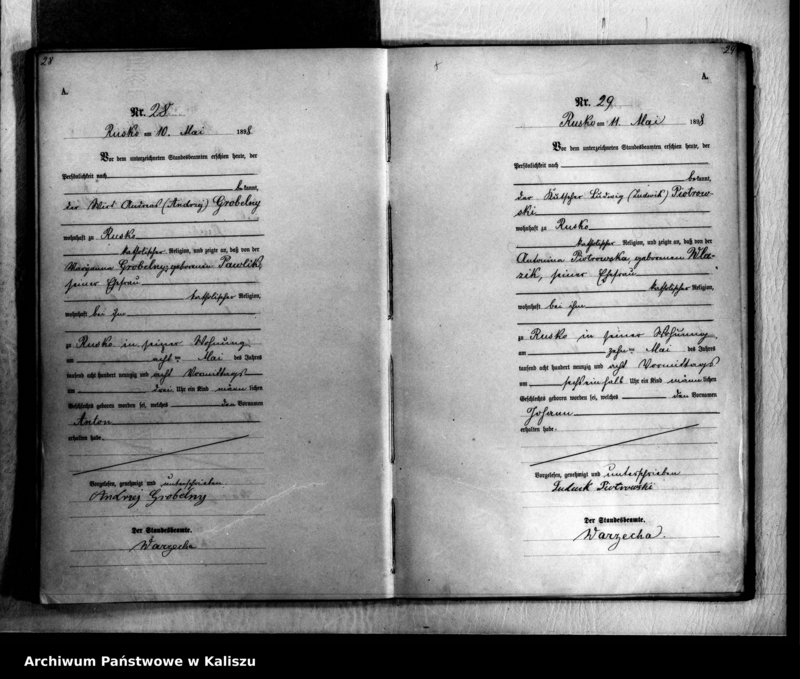 28
A.
Nr. 28
Rusko am 10. Mai 1898
Vor dem unterzeichneten Standesbeamten erschien heute, der
Persönlichkeit nach
bekannt,
der Wirt Andreas (Andrzej) Grobelny
wohnhaft zu Rusko
katholischer Religion, und zeigte an, daß von der
Maryanna Grobelny, geborenen Pawlik,
seiner Ehefrau
katholischer Religion,
wohnhaft bei ihm
zu Rusko in seiner Wohnung
am acht ten Mai des Jahres
tausend acht hundert neunzig und acht Vormittags
um drei Uhr ein Kind männlichen
Geschlechts geboren worden sei, welches den Vornamen
Anton
erhalten habe.
Vorgelesen, genehmigt und unterschrieben
Andrzej Grobelny
Der Standesbeamte.
Warzecha
29
A.
Nr. 29
Rusko am 11. Mai 1898
Vor dem unterzeichneten Standesbeamten erschien heute, der
Persönlichkeit nach
bekannt,
der Kutscher Ludwig (Ludwik) Piotrow-
ski
wohnhaft zu Rusko
katholischer Religion, und zeigte an, daß von der
Antonina Piotrowska, geborenen Wla-
zik, seiner Ehefrau
katholischer Religion,
wohnhaft bei ihm
zu Rusko in seiner Wohnung
am zehn ten Mai des Jahres
tausend acht hundert neunzig und acht Vormittags
um sechseinhalb Uhr ein Kind männlichen
Geschlechts geboren worden sei, welches den Vornamen
Johann
erhalten habe.
Vorgelesen, genehmigt und unterschrieben
Piotrowski
Der Standesbeamte.
Warzecha.
Archiwum Państwowe w Kaliszu